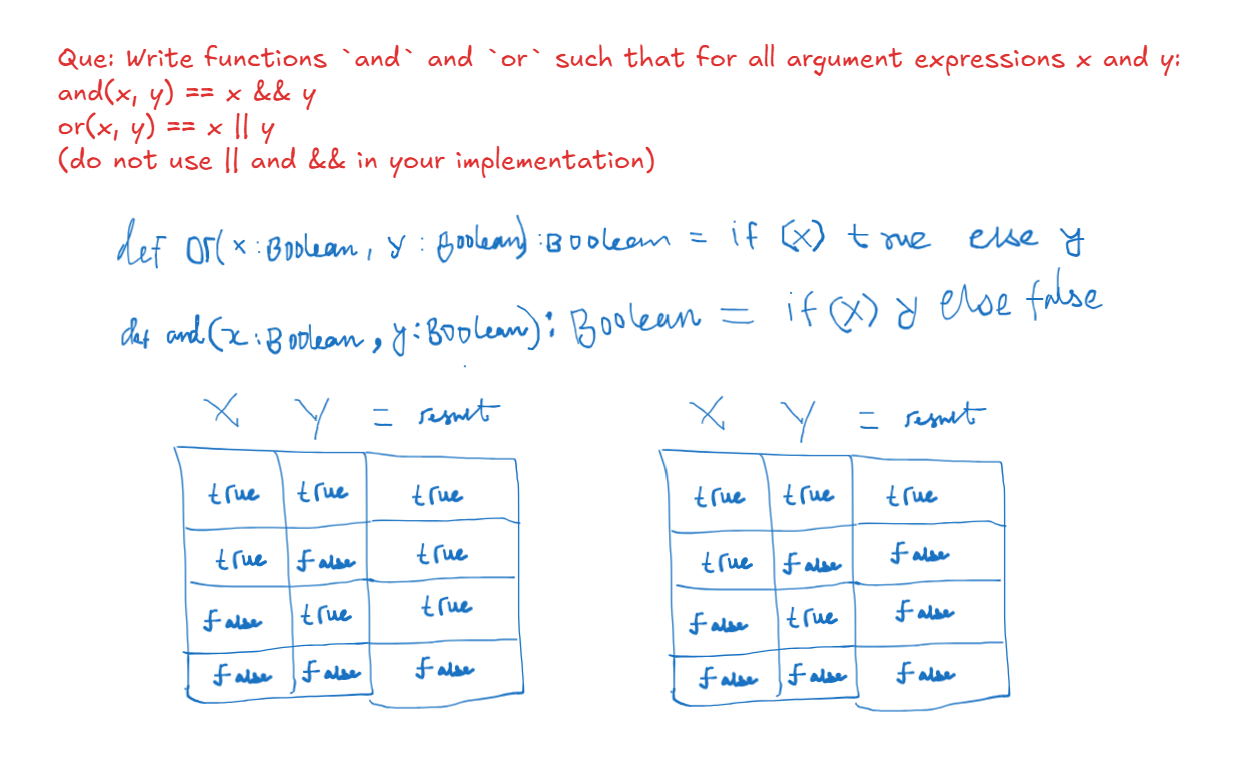 Que: Write functions `and` and `or` such that for all argument expressions x and y:
and(x, y) == x && y
or(x, y) == x || y
(do not use || and && in your implementation)
def or(x:Boolean, y:Boolean):Boolean = if (x) true else y
def and(x:Boolean, y:Boolean): Boolean = if (x) y else false
X Y = result X Y = result
true true true true true true
true false true true false false
false true true false true false
false false false false false false